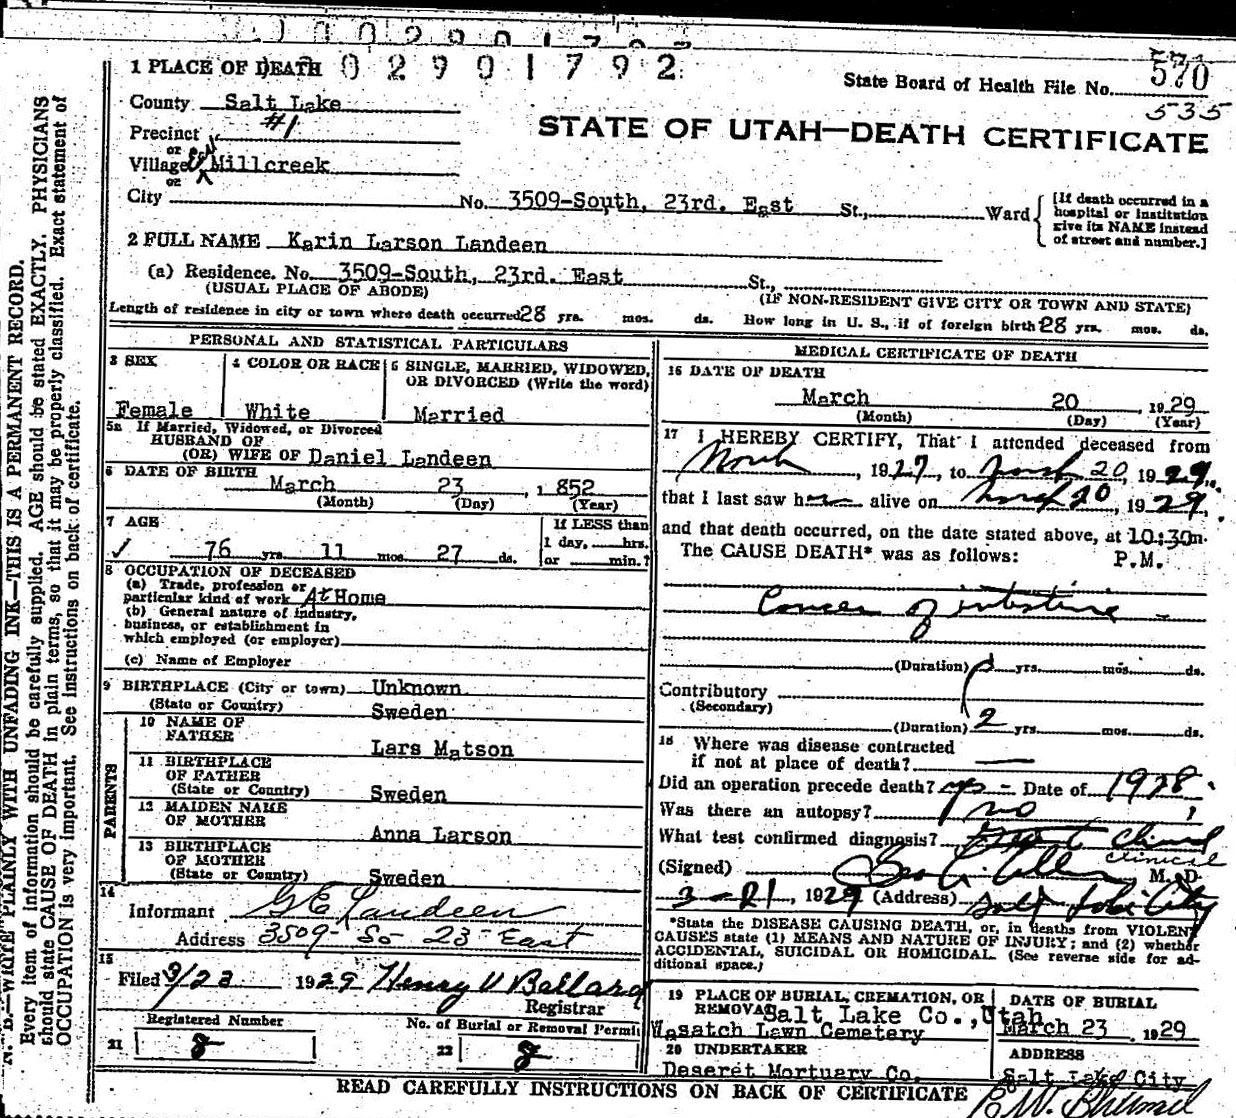 1 PLACE OF DEATH 0 2 9 0 1 7 9 2
State Board of Health File No. 570
535
County Salt Lake
#1
Precinct
or
Village Millcreek
or
City
STATE OF UTAH—DEATH CERTIFICATE
No. 3509-South, 23rd. East St., Ward
[If death occurred in a
hospital or institution
give its NAME instead
of street and number.]
2 FULL NAME Karin Larson Landeen
(a) Residence. No. 3509-South, 23rd. East St.,
(USUAL PLACE OF ABODE) (IF NON-RESIDENT GIVE CITY OR TOWN AND STATE)
Length of residence in city or town where death occurred 28 yrs. mos. ds. How long in U. S., if of foreign birth 28 yrs. mos. ds.
PERSONAL AND STATISTICAL PARTICULARS
3 SEX
Female
4 COLOR OR RACE
White
5 SINGLE, MARRIED, WIDOWED,
OR DIVORCED (Write the word)
Married
5a If Married, Widowed, or Divorced
HUSBAND OF
(OR) WIFE OF Daniel Landeen
6 DATE OF BIRTH
March 23, 1852
(Month) (Day) (Year)
7 AGE
76 yrs. 11 mos. 27 ds.
If LESS than
1 day, hrs.
or min.?
8 OCCUPATION OF DECEASED
(a) Trade, profession or
particular kind of work At Home
(b) General nature of industry,
business, or establishment in
which employed (or employer)
(c) Name of Employer
9 BIRTHPLACE (City or town) Unknown
(State or Country) Sweden
PARENTS
10 NAME OF
FATHER
Lars Matson
11 BIRTHPLACE
OF FATHER
(State or Country) Sweden
12 MAIDEN NAME
OF MOTHER
Anna Larson
13 BIRTHPLACE
OF MOTHER
(State or Country) Sweden
14
Informant G E Landeen
Address 3509 So 23 East
15
Filed 3/23 1929 Henry V Ballard
Registrar
Registered Number
21 8
No. of Burial or Removal Permit
22 8
MEDICAL CERTIFICATE OF DEATH
16 DATE OF DEATH
March 20, 1929
(Month) (Day) (Year)
17 I HEREBY CERTIFY, That I attended deceased from
1927, to March 20, 1929,
that I last saw her alive on March 20, 1929,
and that death occurred, on the date stated above, at 10:30 m.
The CAUSE DEATH* was as follows: P.M.
Cancer of intestine
(Duration) yrs. mos. ds.
Contributory
(Secondary)
(Duration) 2 yrs. mos. ds.
18 Where was disease contracted
if not at place of death? —
Did an operation precede death? yes - Date of 1928
Was there an autopsy? no
What test confirmed diagnosis? Clinical
clinical
(Signed) M. D.
3-21, 1929 (Address) Salt Lake City
*State the DISEASE CAUSING DEATH, or, in deaths from VIOLENT
CAUSES state (1) MEANS AND NATURE OF INJURY; and (2) whether
ACCIDENTAL, SUICIDAL OR HOMICIDAL. (See reverse side for ad-
ditional space.)
19 PLACE OF BURIAL, CREMATION, OR
REMOVAL Salt Lake Co., Utah
Wasatch Lawn Cemetery
DATE OF BURIAL
March 23, 1929
20 UNDERTAKER
Deseret Mortuary Co.
ADDRESS
Salt Lake City
READ CAREFULLY INSTRUCTIONS ON BACK OF CERTIFICATE
N. B.—WRITE PLAINLY WITH UNFADING INK—THIS IS A PERMANENT RECORD.
Every item of information should be carefully supplied. AGE should be stated EXACTLY. PHYSICIANS
should state CAUSE OF DEATH in plain terms, so that it may be properly classified. Exact statement of
OCCUPATION is very important. See instructions on back of certificate.